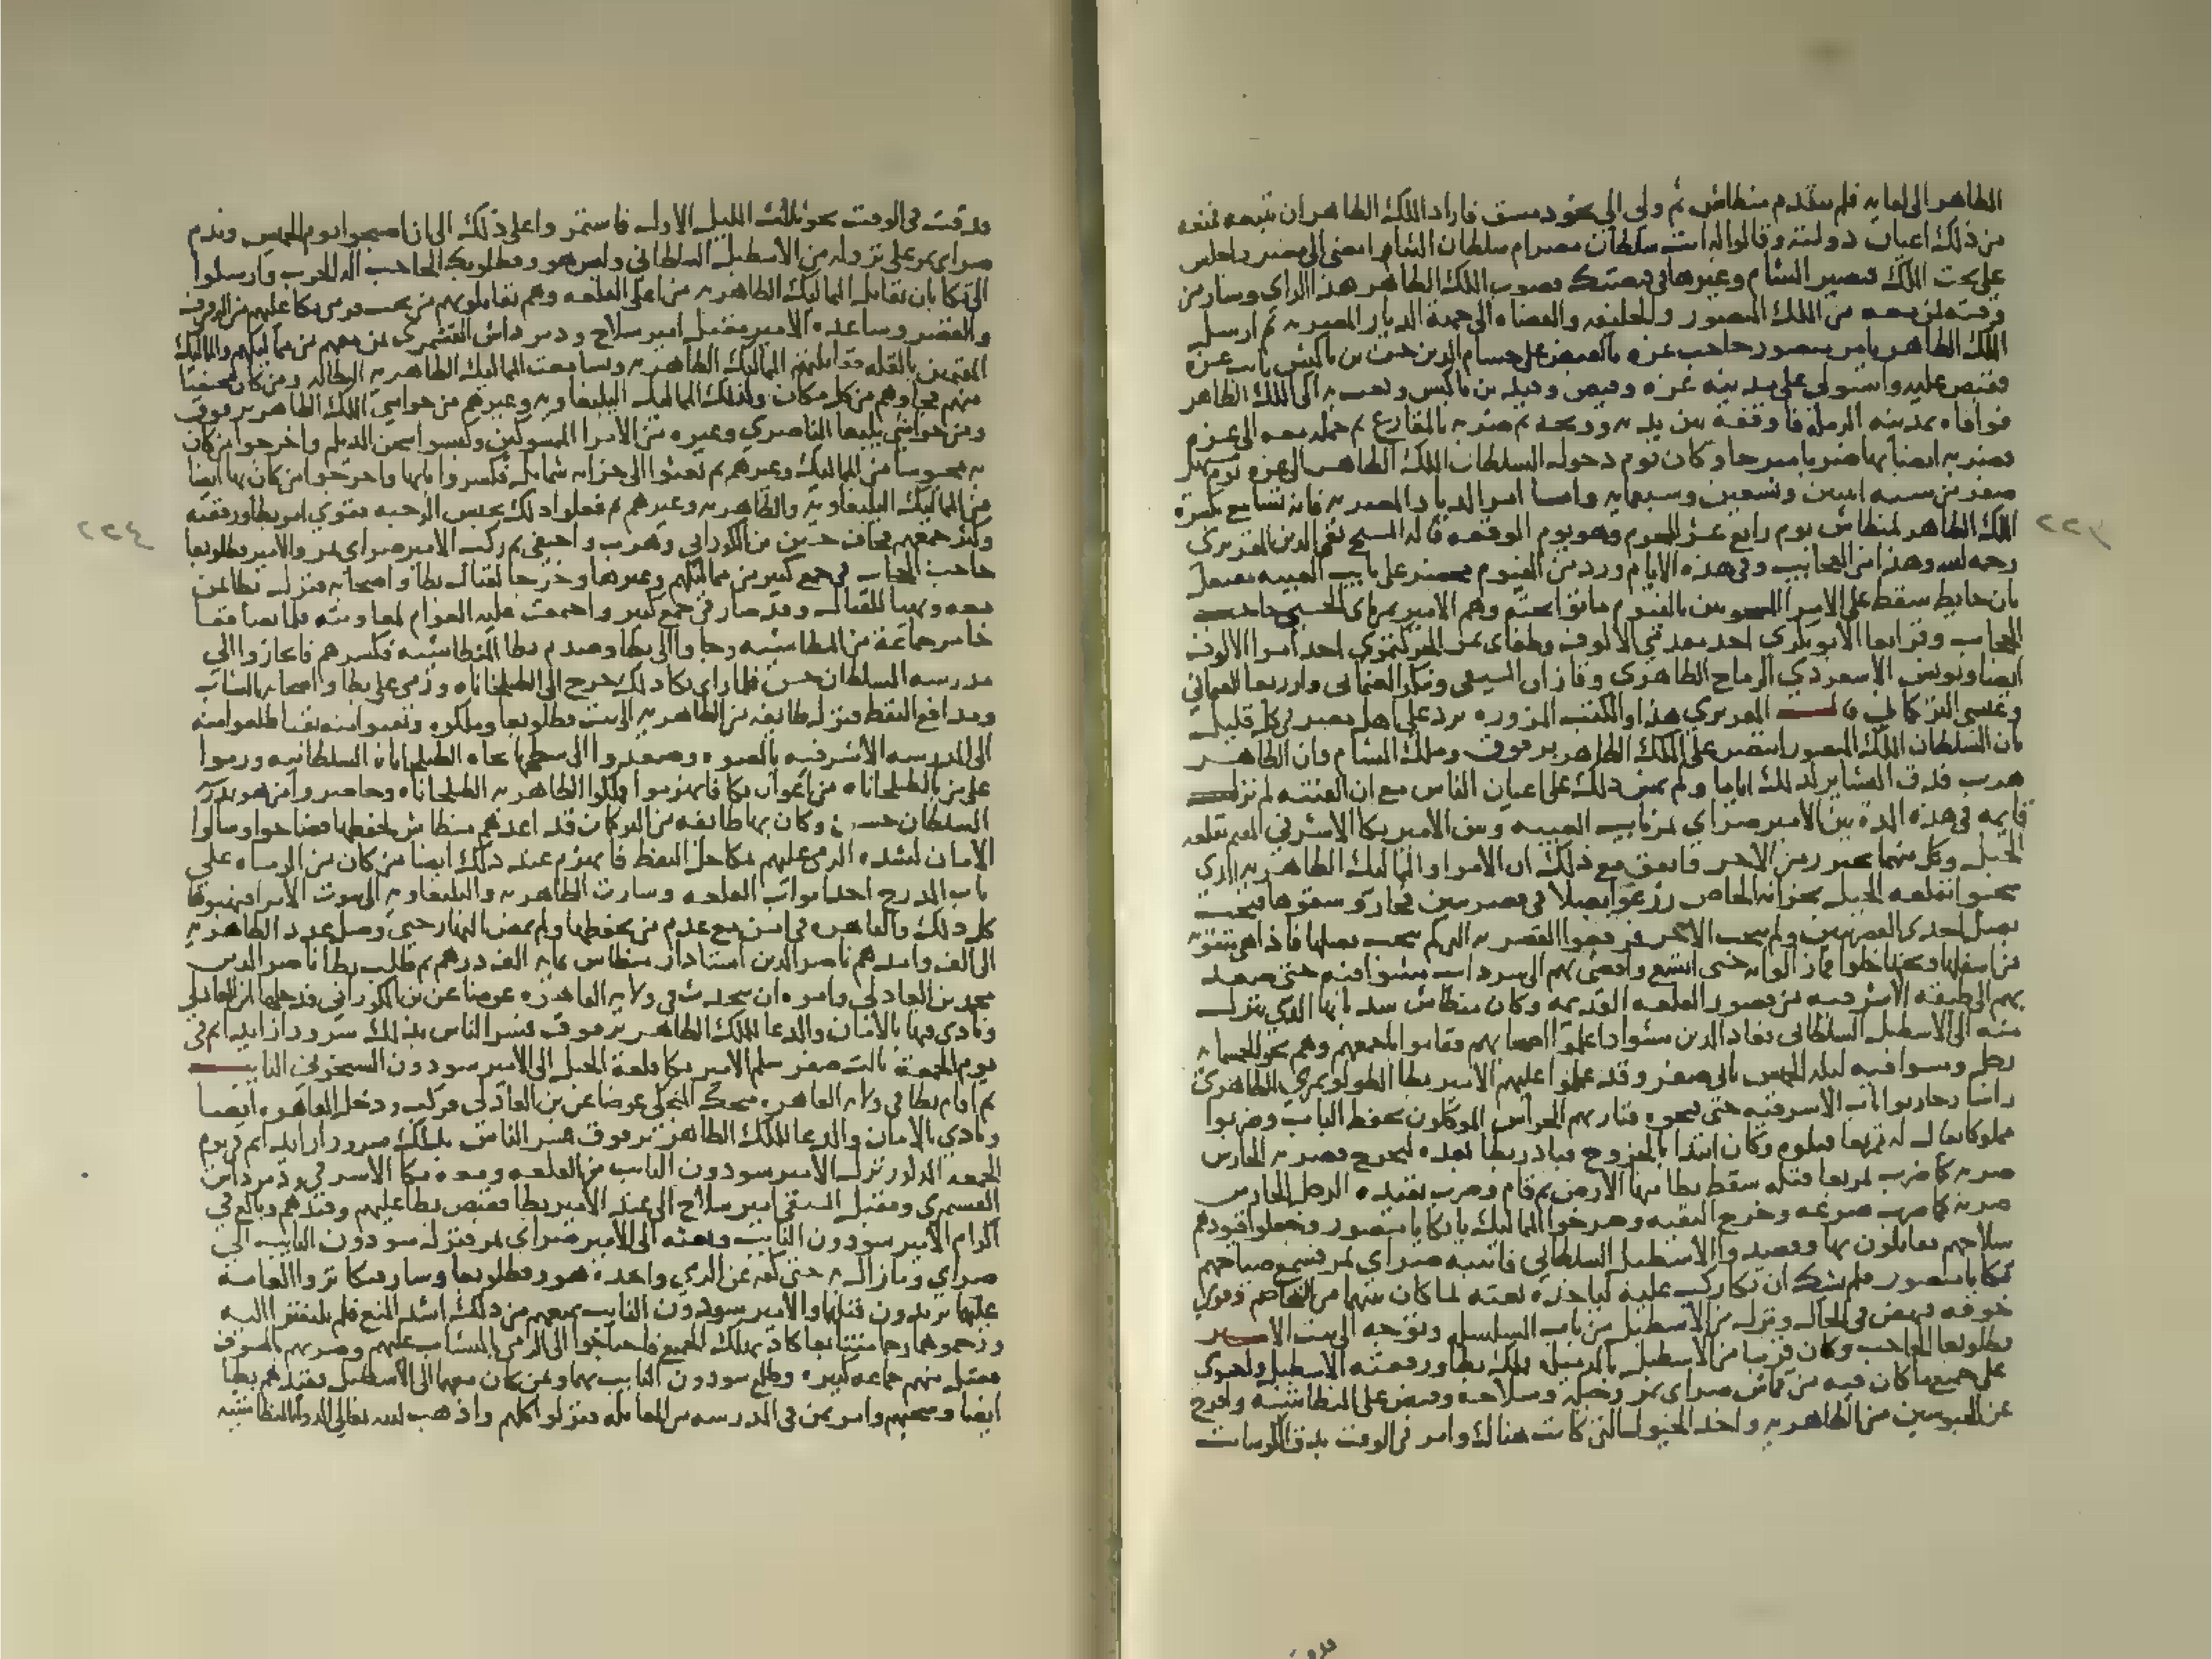 الظاهر الى لقايه فلم يتقدم منطاش ثم ولى الى نحو دمشق فاراد الملك الظاهر ان يتبعه فمنعه
من ذلك اعيان دولته وقالوا له انت سلطان مصر ام سلطان الشام امضى الى مصر واجلس
على تخت الملك فتصير الشام وغيرها في قبضتك فصوب الملك الظاهر هذا الراى وسار من
وقته بمن معه من الملك المنصور والخليفه والقضاه الى جهة الديار المصريه ثم ارسل
الملك الظاهر يامر منصور حاجب غزه بالقبض على حسام الدين حسن بن باكيش نايب غزة
فقبض عليه واستولى على مدينه غزه وقبض وقيد بن باكيش وبعث به الى الملك الظاهر
فوافاه بمدينه الرمله فاوقفه بين يديه ووبخه ثم ضربه بالمقارع ثم حمله معه الى غزه
فضربه ايضا بها ضربا مبرحا وكان يوم دخوله السلطان الملك الظاهر الى غزه يوم مستهل
صفر من سنه اثنين وتسعين وسبعمايه واما امر الديار المصريه فانه تشايع بكسرة
الملك الظاهر لمنطاش يوم رابع عشر المحرم وهو يوم الوقعه قاله الشيخ تقى الدين المقريزى
رحمه لله وهذا من العجايب وفى هذه الايام ورد من الفيوم محضر على نايب الغيبه مفتعل
بان حايط سقط على الامرا المحبوسين بالفيوم ماتوا تحته وهم الامير تمرباى الحسنى حاجب
الحجاب وقرابغا الابوبكرى احد مقدمى الالوف وطغاى تمر الجركتمرى احد امرا الالوف
ايضا ويونس الاسعردي الرماح الطاهرى وقازان السيفى وتنكز العثمانى واردبغا العثمانى
وعيسى التركمانى قالــ المقريزى هذا والكتب المزوره ترد على اهل مصر فى كل قليل
بان السلطان الملك المنصور انتصر على الملك الظاهر برقوق وملك الشام وان الظاهر
هرب فدقت البشاير لذلك اياما ولم يمش ذلك على اعيان الناس مع ان الفتنه لم تزل
قايمه فى هذه المدة بين الامير صراي تمر نايب الغيبه وبين الامير بكا الاشرفى المقيم بقلعه
الجبل وكل منهما يحترز من الاخر فاتفق مع ذلك ان الامرا والمماليك الظاهريه الذى
سجنوا بقلعه الجبل بخزانه الخاص زرعوا بصلا فى قصريتين فخار وسقوها فنجب
بصل احدى القصريتين ولم ينجب الاخر فرفعوا القصريه التى لم ينجب بصلها فاذا هى مثقوبه
من اسفلها وتحتها خلوا فما زالوا به حتى اتسع وافضى بهم الى سرداب مشوا فيه حتى صعد
بهم الى طبقه الاشرفيه من قصور القلعه القديمه وكان منطاش سد بابها الذي ينزل
منه الى الاسطبل السلطانى فعاد الذين مشوا واعلموا اصحابهم فقاموا باجمعهم وهم نحو الخمسمايه
رجل ومشوا فيه ليله الخميس ثانى صفر وقد عملوا عليهم الامير بطا الطولوتمرى الظاهرى
راسا وحاربوا باب الاشرفيه حتى فتحوه فثار بهم الحراس الموكلون بحفظ الباب وضربوا
مملوكا يقال له تمربغا قتلوه وكان ابتدا بالخروج فبادر بطا بعده ليخرج فضربه الحارس
ضربه كما ضرب تمربغا قتله سقط بطا منها الارض ثم قام وضرب بقيده الرجل الحارس
ضربه كما ضرب صرعه وخرج البقيه وصرخوا المماليك يا تكا يا منصور وجعلوا قيودهم
سلاحهم يقاتلون بها وقصدوا الاسطبل السلطانى فانتبه صراى تمر فسمع صياحهم
تكا يا منصور فلم يشك ان تكا ركب عليه لياخذه بغته لما كان بينهما من التخاصم وقوى
خوفه فنهض فى الحال ونزل من الاسطبل من باب السلسله وتوجه الى بيت الامير
قطلوبغا الحاجب وكان قريبا من الاسطبل بالرميله فملك بطا ورفقته الاسطبل واحتوى
على جميع ما كان فيه من قماش صراى تمر وخيله وسلاحه وقبض على المنطاشيه وافرج
عن المحبوسين من الظاهريه واخذ الخيول التى كانت هناك وامر فى الوقت بدق الكوسات
فدقت فى الوقت نحو ثلث الليل الاول فاستمروا على ذلك الى ان اصبحوا يوم الخميس وندم
صراى تمر على نزوله من الاسطبل السلطانى ولبس هو وقطلوبك الحاجب اله الحرب وارسلوا
الى تكا بان يقاتل المماليك الظاهريه من اعلى القلعه وهم يقاتلونهم من تحت فرمى بكا عليهم من الرفرف
والقصر وساعده الامير مقبل امير سلاح ودمرداش القشتمرى بمن معهم من مماليكهم والمماليك
المقيمين بالقلعه فقاتلتهم المماليك الظاهريه وتسامعت المماليك الظاهريه البطاله ومن كان مختفيا
منهم فجاوهم من كل مكان وكذلك المماليك اليلبغاويه وغيرهم من حواشى الملك الظاهر برقوق
ومن حواشي يلبغا الناصري وغيره من الامرا الممسوكين وكبسوا سجن الديلم واخرجوا من كان
به محبوسا من المماليك وغيرهم ثم بعثوا الى خزانه شمايل فكسروا بابها واخرجوا من كان بها ايضا
من المماليك اليلبغاويه والظاهريه وغيرهم ثم فعلوا ذلك بحبس الرحبه فقوي امر بطا ورفقته
وكثر جمعهم فخاف حسين بن الكورانى وهرب واختفى ثم ركب الامير صراى تمر والامير قطلوبغا
حاجب الحجاب فى جمع كبير من مماليكهم وغيرها وخرجا لقتال بطا واصحابه فنزل بطا بمن
معه وتهيا للقتال وقد صار فى جمع كبير واجتمعت عليه العوام لمعاونته فلما تصاففا
خامر جماعة من المنطاشيه وجاوا الى بطا وصدم بطا المنطاشيه فكسرهم فانحازوا الى
مدرسه السلطان حسن فلما راى تكا ذلك خرج الى الطبلخاناه ورمى على بطا واصحابه بالنشاب
ومدافع النفط فنزل طايفه من الظاهريه الى بيت قطلوبغا وملكوه ونقبوا منه نقبا طلعوا منه
الى المدرسه الاشرفيه بالصوه وصعدوا الى سطحها تجاه الطبلخاناه السلطانيه ورموا
على من بالطبلخاناه من اعوان بكا فانهزموا وملكوا الظاهريه الطبلخاناه وحاصروا من هو بمدرسة
السلطان حسن وكان بها طايفه من التركمان قد اعدهم منطاش لحفظها فصاحوا وسالوا
الامان لشده الرمى عليهم بمكاحل النفط فانهزم عند ذلك ايضا من كان من الرماه على
باب المدرج احد ابواب القلعه وسارت الظاهريه واليلبغاويه الى بيوت الامرا فنهبوها
كل ذلك والقاهره فى امن مع عدم من يحفظها ولم يمض النهار حتى وصل عدد الظاهريه
الى الف وامدهم ناصر الدين استادار منطاش بمايه الف درهم ثم طلب بطا ناصر الدين
محمد بن العادلى وامره ان يتحدث فى ولايه القاهره عوضا عن بن الكورانى فدخلها بن العادلى
ونادى فيها بالامان والدعا للملك الظاهر برقوق فسر الناس بذلك سرورا زايدا ثم فى
يوم الجمعة ثالث صفر سلم الامير بكا قلعة الجبل الى الامير سودون الشيخونى النايب
ثم اقام بطا فى ولايه القاهره منجك المنجكى عوضا عن بن العادلى فركب ودخل القاهره ايضا
ونادى بالامان والدعا للملك الظاهر برقوق فسر الناس بذلك سرورا زايدا ثم فى يوم
الجمعه المذكور نزل الامير سودون النايب من القلعه ومعه بكا الاشرفى ودمرداش
القشتمرى ومقبل السيفى امير سلاح الى عند الامير بطا فقبض بطا عليهم وقيدهم وبالغ فى
اكرام الامير سودون النايب وبعثه الى الامير صراى تمر فنزل سودون النايب الى
صراى وما زال به حتى كفه عن الرمى واخذه هو وقطلوبغا وسار فتكاثروا العامه
عليها يريدون قتلها والامير سودون النايب يمنعهم من ذلك اشد المنع فلم يلتفتوا اليه
ورجموهما رجما متتابعا كاد يهلك الجميع فاحتاجوا الى الرمى بالنشاب عليهم وضربهم بالسيوف
فقتل منهم جماعه كبيره وطلع سودون النايب بهما وبمن كان معهما الى الاسطبل فقيدهم بطا
ايضا وسجنهم وامر بمن فى المدرسه من المقاتله فنزلوا كلهم واذهب لله تعالى الدوله المنطاشيه